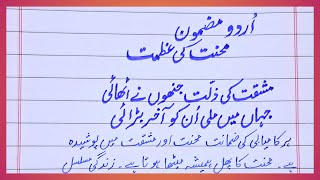 اُردو مضمون
محنت کی عظمت
مشقت کی ذلت جنھوں نے اُٹھائی
جہاں میں ملی اُن کو آخر بڑائی
ہر کامیابی کی ضمانت محنت اور مشقت میں پوشیدہ
ہے۔ محنت کا پھل ہمیشہ میٹھا ہوتا ہے۔ زندگی مسلسل